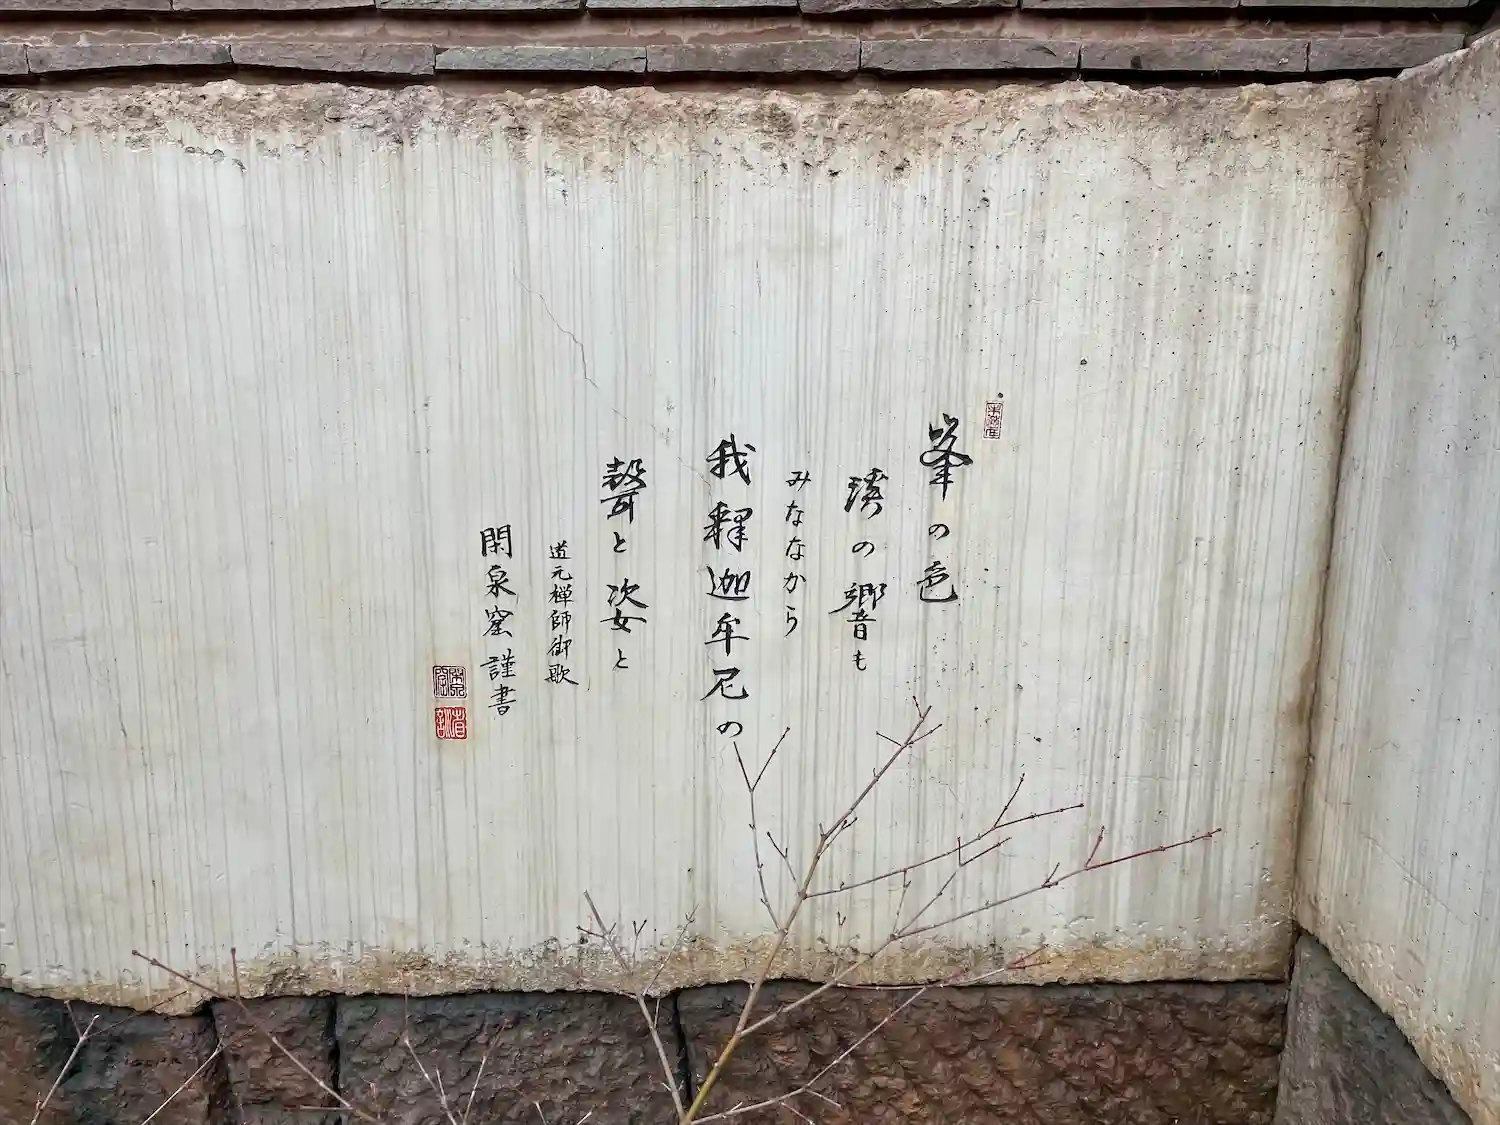 峯の色
溪の響も
みななから
我釋迦牟尼の
聲と姿と
道元禅師御歌
閑泉窯謹書